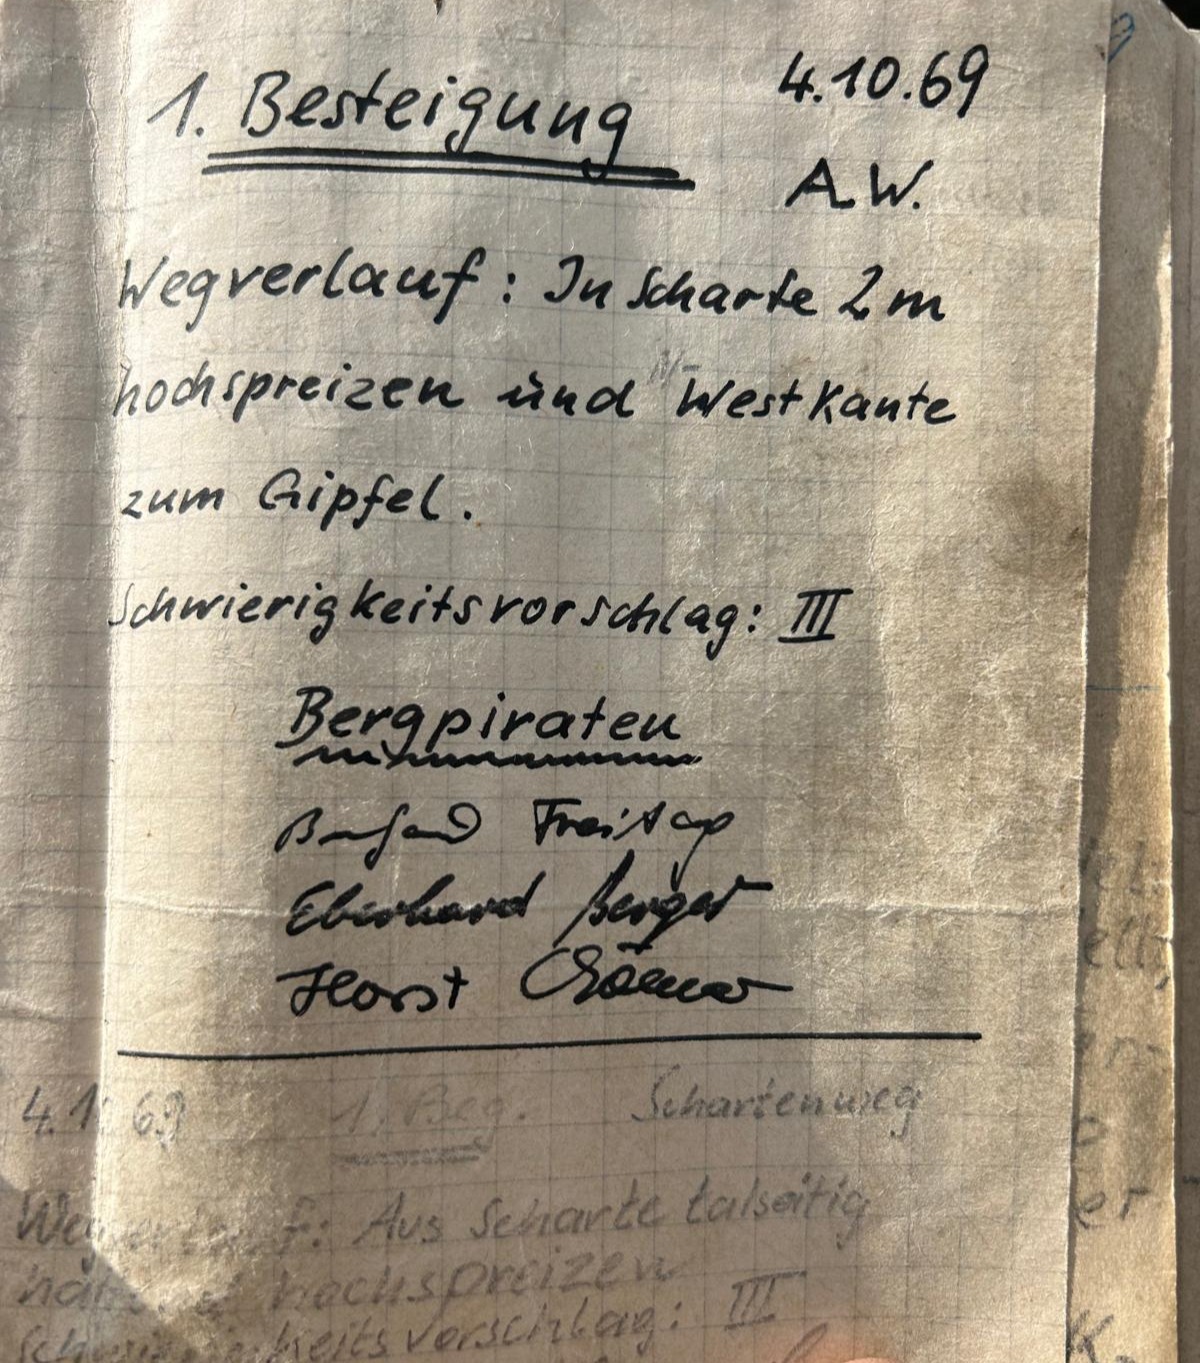 1. Besteigung 4.10.69
A.W.
Wegverlauf: In Scharte 2m
hochspreizen und Westkante
N-
zum Gipfel.
Schwierigkeitsvorschlag: III
Bergpiraten
Freitag
Eberhard Berger
Horst
1. Beg. Schartenweg
Wegverlauf: Aus Scharte talseitig
hochspreizen
Schwierigkeitsvorschlag: III